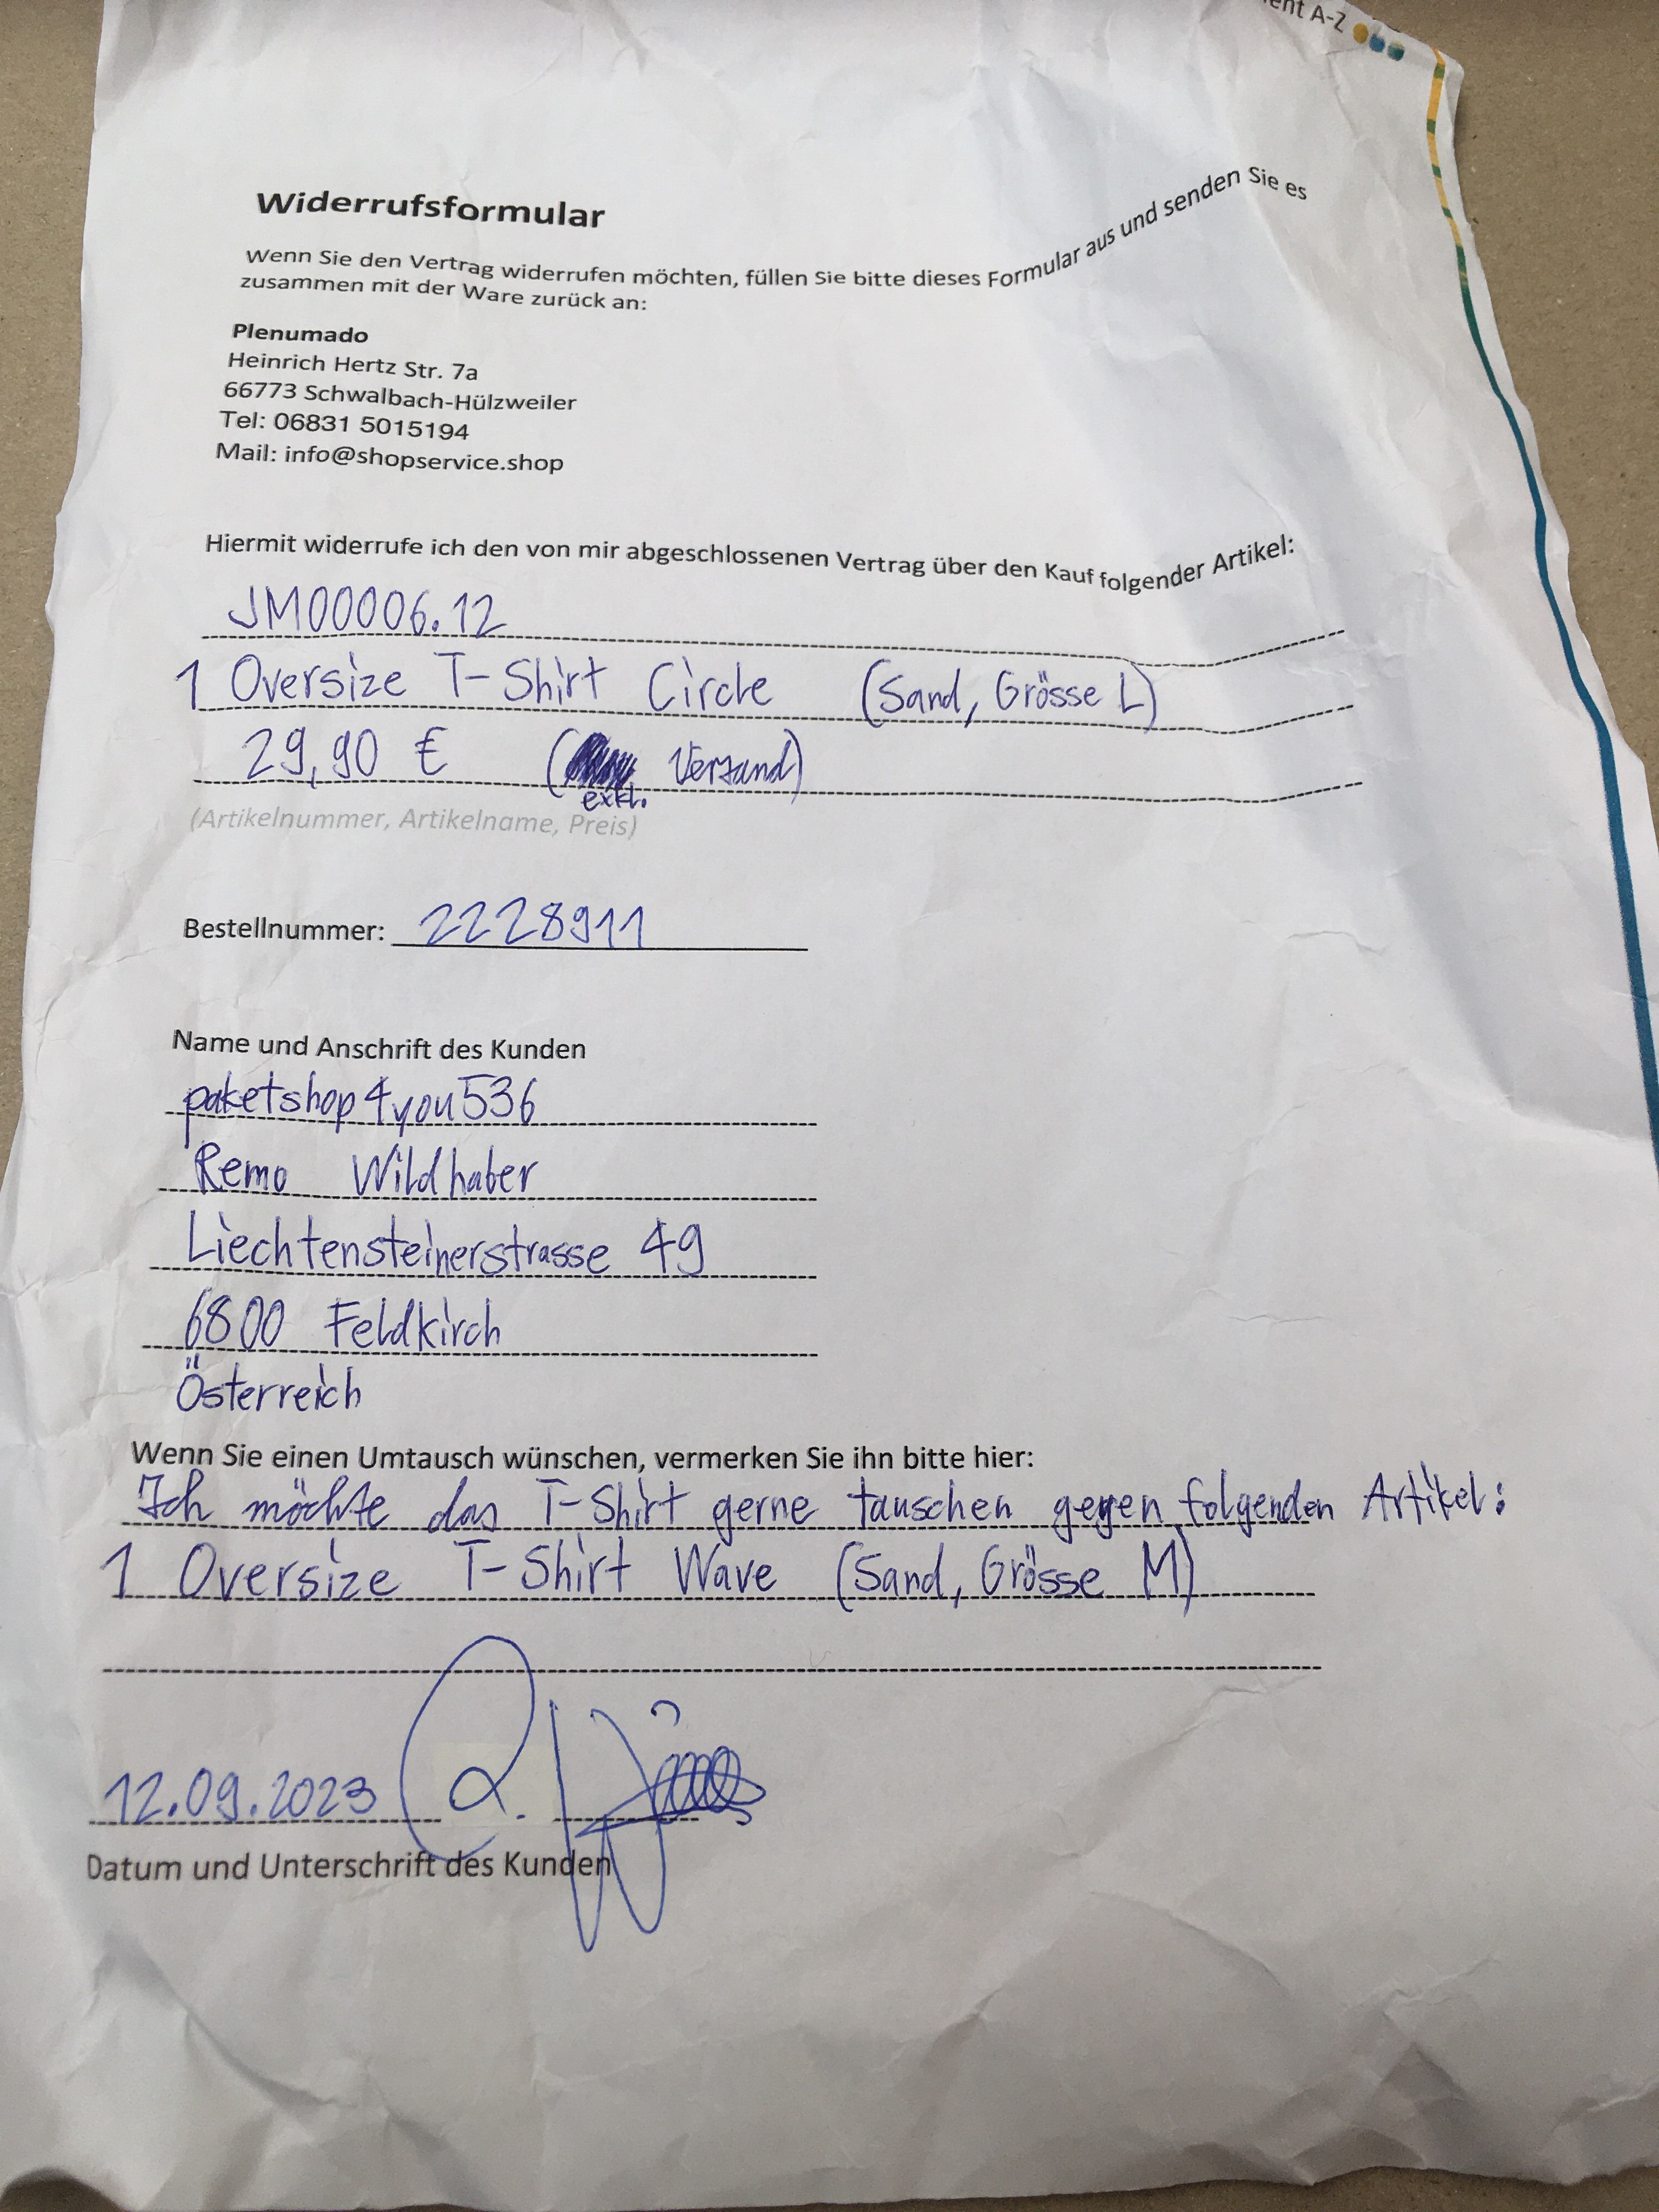 ent A-Z
Widerrufsformular
Wenn Sie den Vertrag widerrufen möchten, füllen Sie bitte dieses Formular aus und senden Sie es
zusammen mit der Ware zurück an:
Plenumado
Heinrich Hertz Str. 7a
66773 Schwalbach-Hülzweiler
Tel: 06831 5015194
Mail: info@shopservice.shop
Hiermit widerrufe ich den von mir abgeschlossenen Vertrag über den Kauf folgender Artikel:
JM00006.12
1 Oversize T-Shirt Circle (Sand, Grösse L)
29,90 € ( Versand)
exkl.
(Artikelnummer, Artikelname, Preis)
Bestellnummer: 2228911
Name und Anschrift des Kunden
paketshop4you536
Remo Wildhaber
Liechtensteinerstrasse 49
6800 Feldkirch
Österreich
Wenn Sie einen Umtausch wünschen, vermerken Sie ihn bitte hier:
Ich möchte das T-Shirt gerne tauschen gegen folgenden Artikel:
1 Oversize T-Shirt Wave (Sand, Grösse M)
12.09.2023
Datum und Unterschrift des Kunden